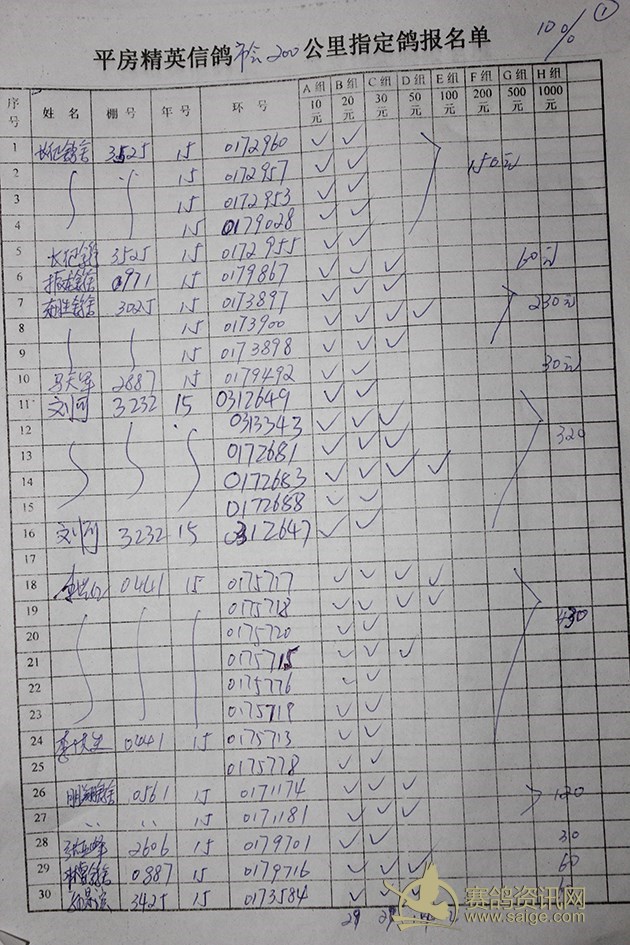 10%
①
平房精英信鸽市会200公里指定鸽报名单
序号 姓名 棚号 年号 环号 A组10元 B组20元 C组30元 D组50元 E组100元 F组200元 G组500元 H组1000元
1 长征鸽舍 3525 15 0172960 ✓ ✓
2 15 0172957 ✓ ✓ 150元
3 15 0172953 ✓ ✓
4 15 0179028 ✓ ✓
5 长征鸽 3525 15 0172955 ✓ ✓
6 0971 15 0179867 ✓ ✓ ✓ 60元
7 3025 15 0173897 ✓ ✓ ✓
8 15 0173900 ✓ ✓ ✓ ✓ 230元
9 15 0173898 ✓ ✓ ✓
10 2887 15 0179492 ✓ ✓ 30元
11 刘河 3232 15 0312649 ✓ ✓
12 0313343 ✓ ✓ ✓
13 0172681 ✓ ✓ ✓ 320
14 0172683 ✓ ✓ ✓ ✓
15 0172688 ✓ ✓
16 刘河 3232 15 0312647 ✓ ✓
17
18 0441 15 0175717 ✓ ✓ ✓ ✓
19 0175718 ✓ ✓ ✓ ✓
20 0175720 ✓ ✓ 430
21 0175715 ✓ ✓ ✓
22 0175776 ✓ ✓
23 0175719 ✓ ✓
24 0441 15 0175713 ✓ ✓
25 0175778 ✓ ✓
26 0561 15 0171174 ✓ ✓ ✓ 120
27 〃 〃 15 0171181 ✓ ✓ ✓
28 2606 15 0179701 ✓ ✓ 30
29 0887 15 0179716 ✓ ✓ ✓ 60
30 3425 15 0173584 ✓ ✓ ✓
29 29
赛鸽资讯网
www.saige.com